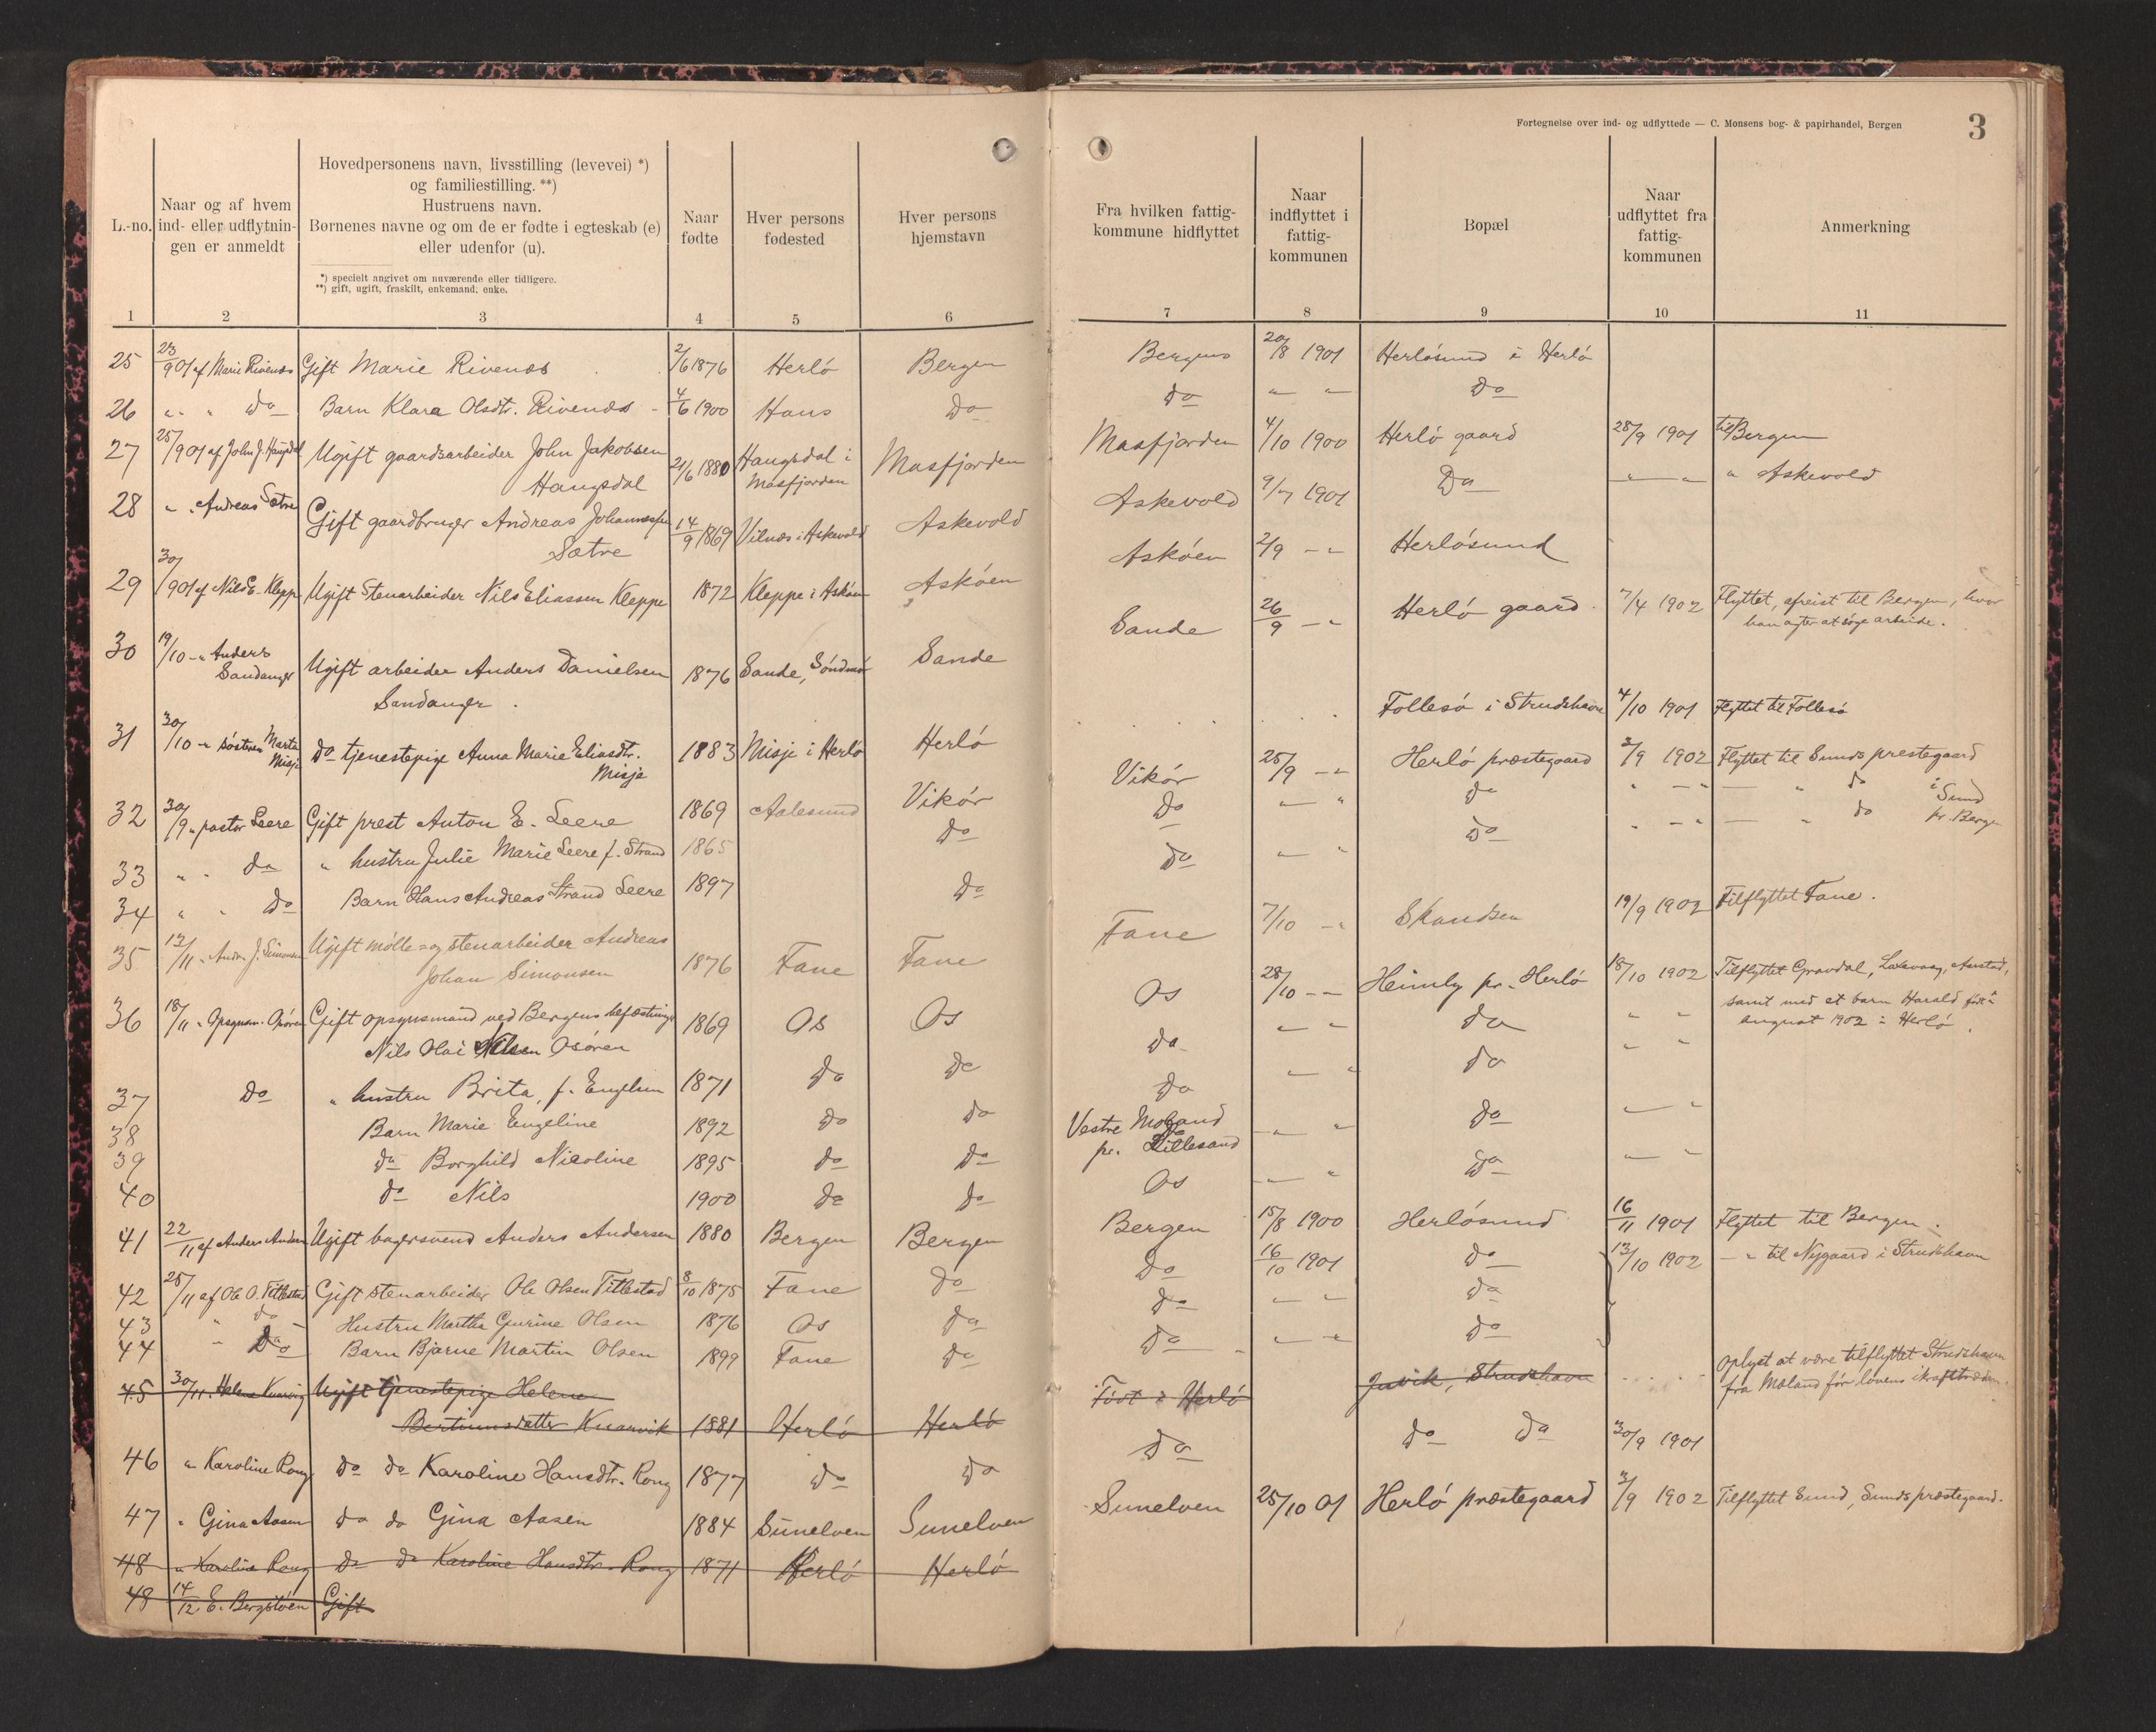 Fortegnelse over ind- og udflyttede — C. Monsens bog- & papirhandel, Bergen
3
L.-no.
Naar og af hvem ind- eller udflytnin-gen er anmeldt
Hovedpersonens navn, livsstilling (levevei) *)
og familiestilling. **)
Hustruens navn.
Børnenes navne og om de er fødte i egteskab (e)
eller udenfor (u).
*) specielt angivet om nuværende eller tidligere.
**) gift, ugift, fraskilt, enkemand, enke.
Naar fødte
Hver persons fødested
Hver persons hjemstavn
Fra hvilken fattig-kommune hidflyttet
Naar indflyttet i fattig-kommunen
Bopæl
Naar udflyttet fra fattig-kommunen
Anmerkning
1 2 3 4 5 6 7 8 9 10 11
25 23/9 01 af Marie Rivenæs Gift Marie Rivenæs 2/6 1876 Herlø Bergen Bergens 20/8 1901 Herløsund i Herlø
26 " " Do Barn Klara Olsdtr. Rivenæs 4/6 1900 Haus Do Do " " Do
27 25/9 01 af John J. Haugsdal Ugift gaardsarbeider John Jakobsen
Haugsdal 21/6 1880 Haugsdal i Masfjorden Masfjorden Masfjorden 4/10 1900 Herlø gaard 28/9 1901 til Bergen
28 " Andreas Sætre Gift gaardbruger Andreas Johannessen
Sætre 14/9 1869 Vilnæs i Askevold Askevold Askevold 9/7 1901 Do — " " Askevold
29 30/9 01 af Nils E. Kleppe Ugift Stenarbeider Nils Eliassen Kleppe 1872 Kleppe i Askøen Askøen Askøen 2/9 — " Herløsund
30 19/10 - " Anders Sandanger Ugift arbeider Anders Danielsen
Sandanger 1876 Sande, Søndmør Sande Sande 26/9 — " Herlø gaard 7/4 1902 Flyttet, afreist til Bergen, hvor
han agter at søge arbeide.
31 30/10 - " søsteren Marta Misje Do tjenestepige Anna Marie Eliasdtr.
Misje 1883 Misje i Herlø Herlø Follesø i Strudshavn 4/10 1901 Flyttet til Follesø
32 30/9 " pastor Leere Gift prest Anton E. Leere 1869 Aalesund Vikør Vikør 25/9 — " Herlø præstegaard 3/9 1902 Flyttet til Sunds prestegaard
33 " " Do " hustru Julie Marie Leere f. Strand 1865 Do Do — " Do " — " — " do i Sund
34 " " Do Barn Hans Andreas Strand Leere 1897 Do Do — " Do " — " — " do pr. Bergen
35 12/11 " Andr. J. Simonsen Ugift mølle- og stenarbeider Andreas
Johan Simonsen 1876 Fane Fane Fane 7/10 — " Skandsen 19/9 1902 Tilflyttet Fane.
36 18/11 " Opsynsm. Osøren Gift opsynsmand ved Bergens befæstninger
Nils Olai Nilsen Osøren 1869 Os Os Os 28/10 — " Heimly pr. Herlø 18/10 1902 Tilflyttet Gravdal, Laxevaag, Aarstad,
samt med et barn Harald født
august 1902 i Herlø.
37 Do " hustru Brita, f. Engelsen 1871 Do Do Do " " Do " "
38 Barn Marie Engeline 1892 Do Do Do — " Do " "
39 do Borghild Nicoline 1895 do Do Vestre Moland
pr. Lillesand — " Do — "
40 do Nils 1900 do Do Os — " Do — "
41 22/11 af Anders Andersen Ugift bagersvend Anders Andersen 1880 Bergen Bergen Bergen 15/8 1900 Herløsund 16/11 1901 Flyttet til Bergen.
42 25/11 af Ole O. Titlestad Gift stenarbeider Ole Olsen Titlestad 8/10 1875 Fane Do Do 16/10 1901 Do 13/10 1902 — " til Nygaard i Strudshavn
43 " Do Hustru Martha Gurine Olsen 1876 Os Do Do " " Do
44 " Do Barn Bjarne Martin Olsen 1899 Fane Do Do — " Do
45 30/11 " Helene Knarvig Ugift tjenestepige Helene
Bertinusdatter Knarvik 1881 Herlø Herlø Født i Herlø Juvik, Strudshavn Oplyst at være tilflyttet Strudshavn
fra Mæland før lovens ikrafttræden.
46 " Karoline Rong Do do Karoline Hansdtr. Rong 1877 Do Do Do Do Do 30/9 1901
47 " Gina Aasen Do do Gina Aasen 1884 Sunelven Sunelven Sunelven 25/10 01 Herlø præstegaard 3/9 1902 Tilflyttet Sund, Sunds præstegaard.
48 " Karoline Rong do do Karoline Hansdtr. Rong 1871 Herlø Herlø
48 14/12 E. Gift